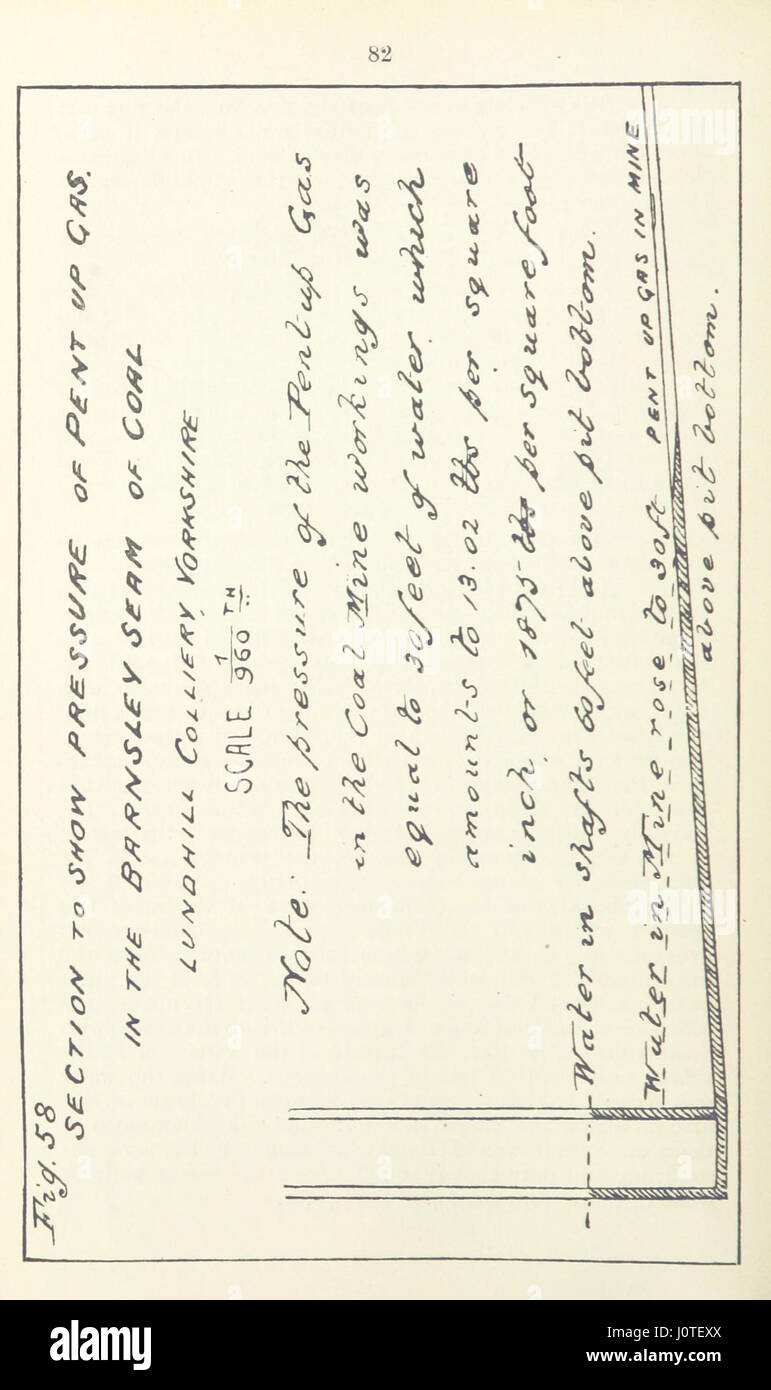 82
Fig. 58
SECTION TO SHOW PRESSURE OF PENT UP GAS.
IN THE BARNSLEY SEAM OF COAL
LUNDHILL COLLIERY, YORKSHIRE
SCALE 1/960 TH
Note: The pressure of the Pent-up Gas
in the Coal Mine workings was
equal to 30 feet of water which
amounts to 13.02 lbs per square
inch, or 1875 lbs per square foot
Water in shafts 60 feet above pit bottom.
Water in Mine rose to 30 ft
above pit bottom.
PENT UP GAS IN MINE
alamy
alamy
alamy
Image ID: J0TEXX
www.alamy.com